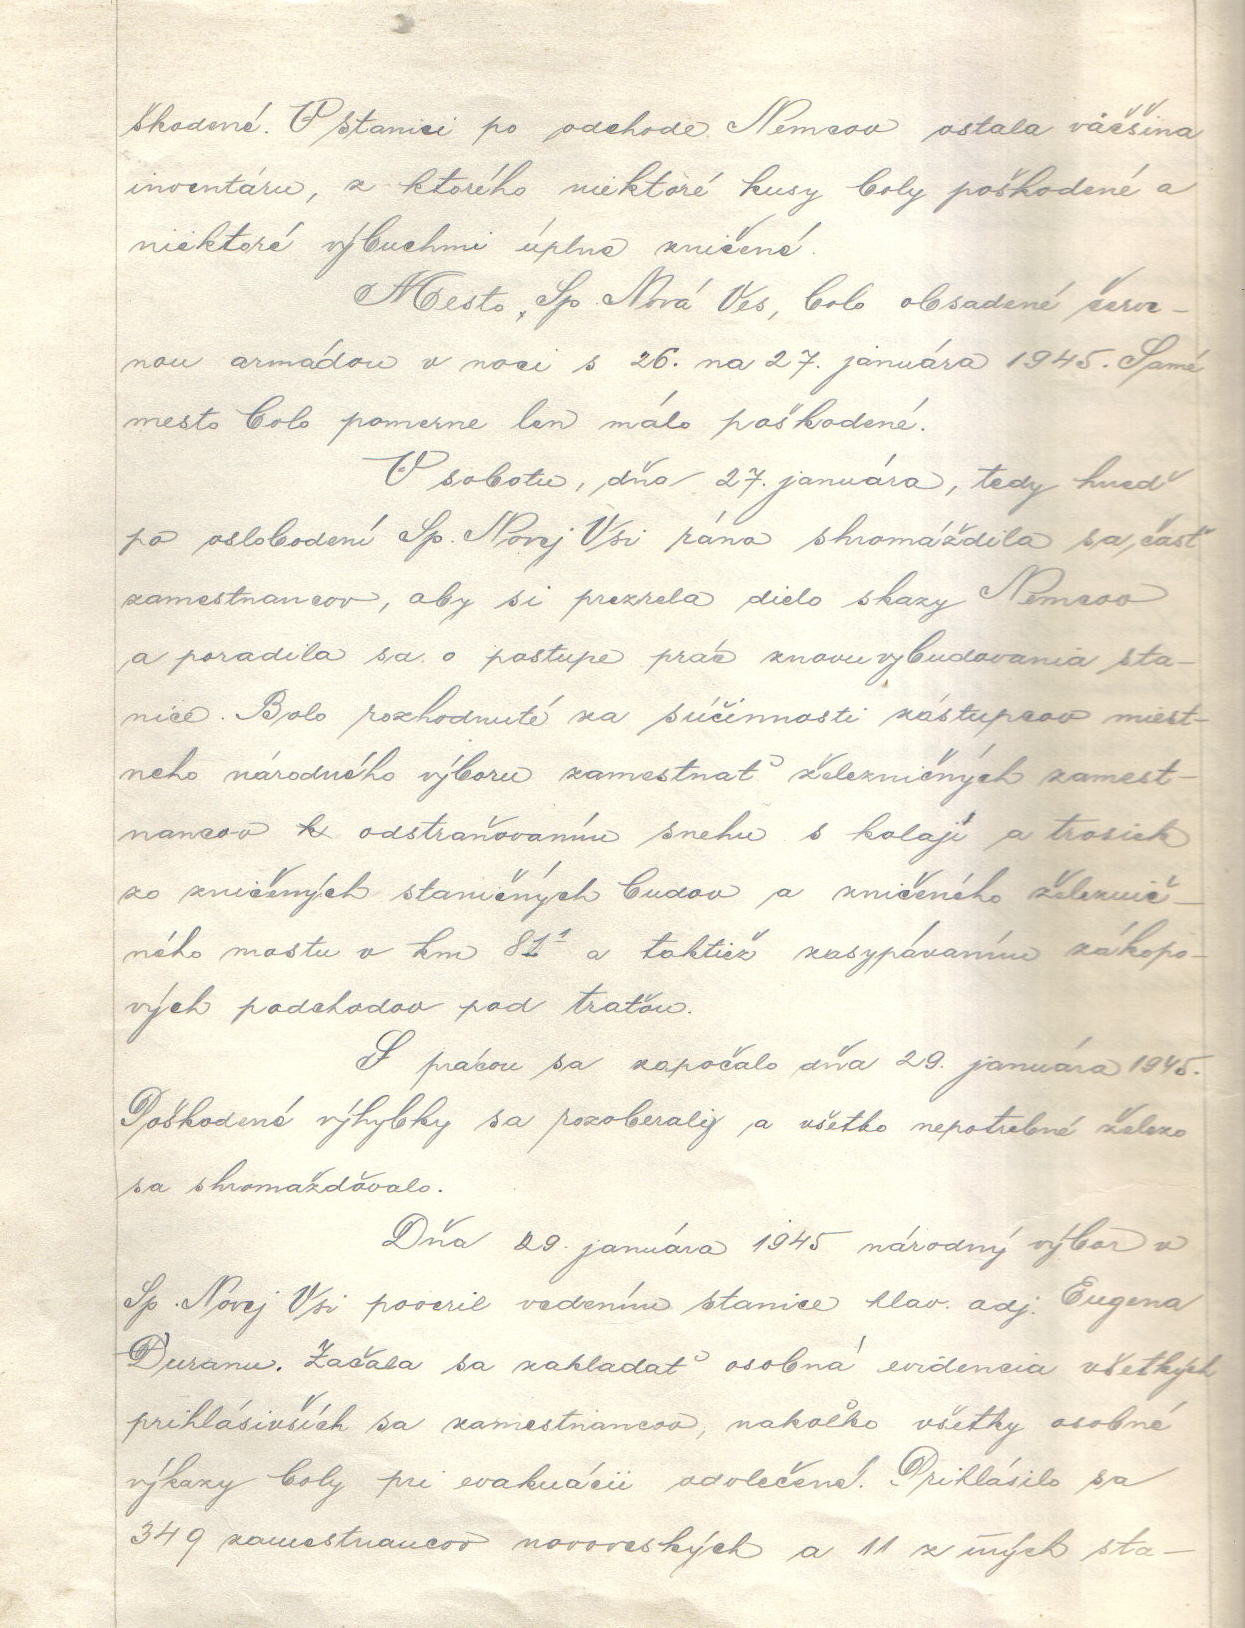 škodené. V stanici po odchode Nemcov ostala väčšina
inventáru, z ktorého niektoré kusy boly poškodené a
niektoré výbuchmi úplne zničené.
Mesto, Sp. Nová Ves, bolo obsadené červe-
nou armádou v noci s 26. na 27. januára 1945. Samé
mesto bolo pomerne len málo poškodené.
V sobotu, dňa 27. januára, tedy hneď
po oslobodení Sp. Novej Vsi rána shromáždila sa, časť
zamestnancov, aby si prezrela dielo skazy Nemcov
a poradila sa o postupe prác znovuvybudovania sta-
nice. Bolo rozhodnuté za súčinnosti zástupcov miest-
neho národného výboru zamestnať železničných zamest-
nancov k odstraňovaniu snehu s kolají a trosiek
zo zničených staničných budov a zničeného železnič-
ného mostu v km 81¹ a taktiež zasypávaniu zákopo-
vých podchodov pod traťou.
S prácou sa započalo dňa 29. januára 1945.
Poškodené výhybky sa rozoberaly a všetko nepotrebné železo
sa shromažďovalo.
Dňa 29. januára 1945 národný výbor v
Sp. Novej Vsi poveril vedením stanice hlav. adj. Eugena
Duranu. Začala sa zakladať osobná evidencia všetkých
prihlásivších sa zamestnancov, nakoľko všetky osobné
výkazy boly pri evakuácii odvlečené. Prihlásilo sa
349 zamestnancov novoveských a 11 z iných sta-